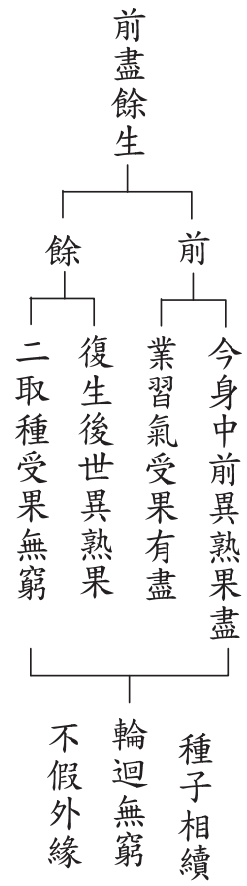 前盡餘生
前
餘
今身中前異熟果盡
業習氣受果有盡
復生後世異熟果
二取種受果無窮
種子相續
輪迴無窮
不假外緣